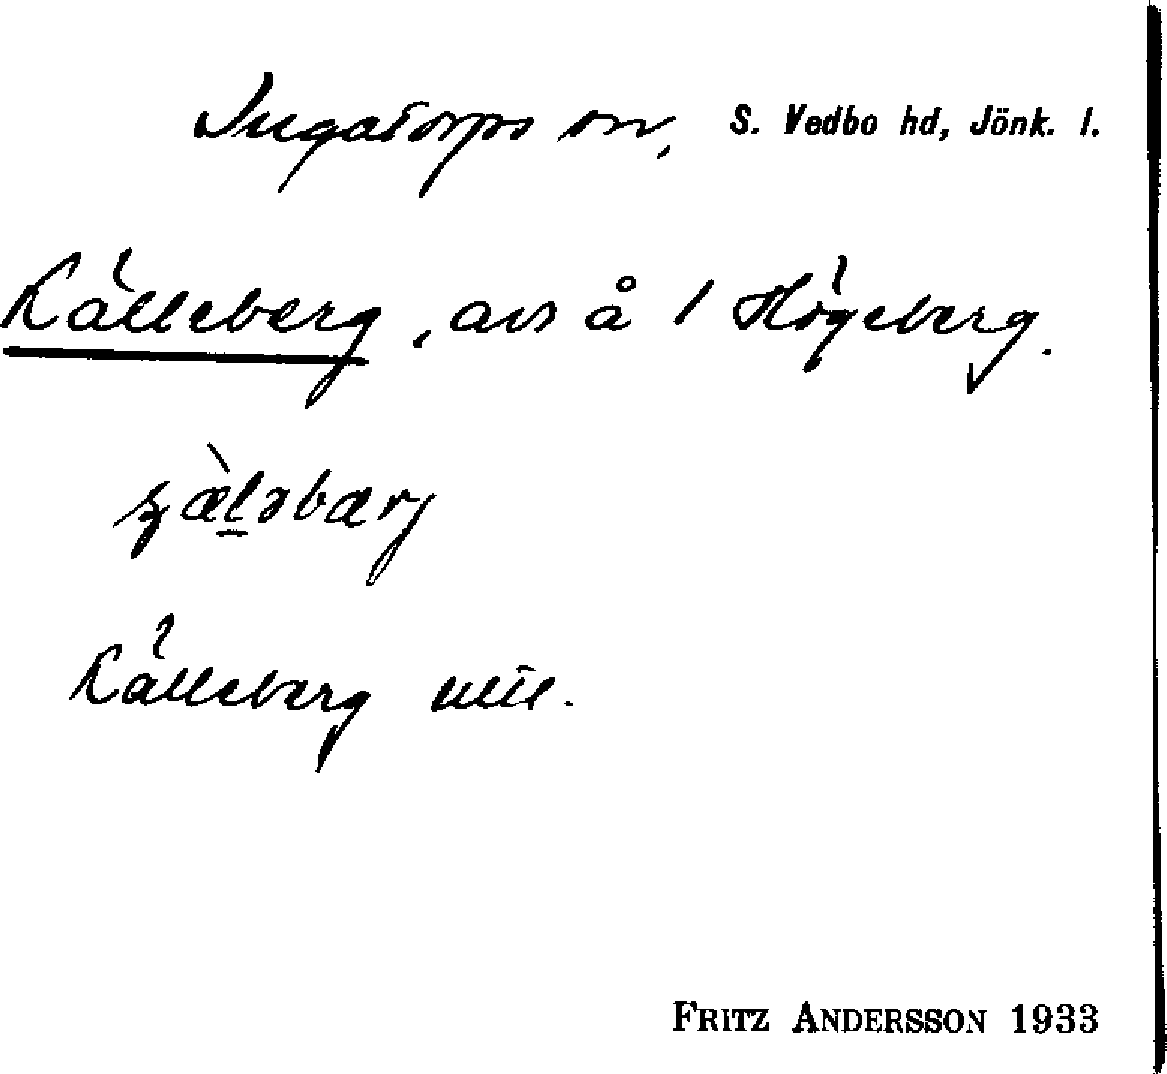 Ingatorps sn, S. Vedbo hd, Jönk. l.
Källeberg, avs å 1 Högeberg.
Källeberg
FRITZ ANDERSSON 1933